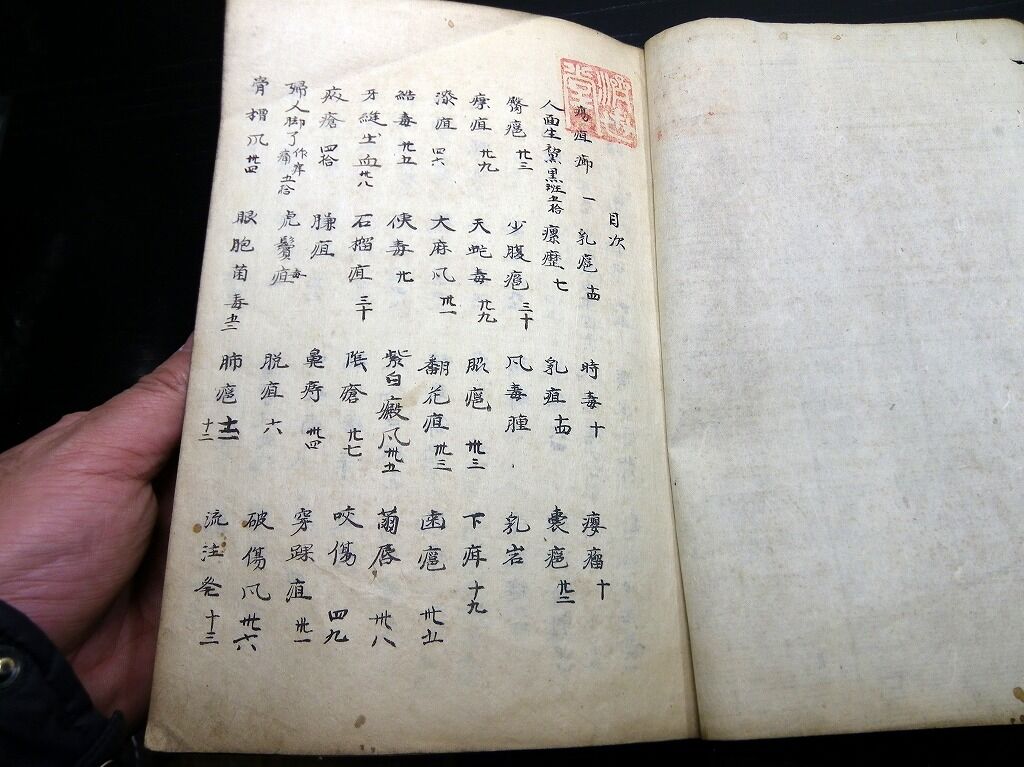 目次
疽癤 一 乳癰 十四 時毒 十 癭瘤 十
人面生黧黒斑 五拾 瘰癧 七 乳疽 十四 囊癰 卅二
臀癰 廿三 少腹癰 三十 風毒腫 乳岩
療疽 廿九 天蛇毒 廿九 腿癰 卅三 下疳 十九
瘭疽 四六 大麻風 卅一 翻花疽 卅三 齒癰 卅五
結毒 廿五 便毒 廿 紫白癜風 卅五 繭唇 卅八
牙縫出血 卅八 石榴疽 三十 陰瘡 廿七 咬傷 四九
疥瘡 四拾 臁疽 鼻痔 卅四 穿踝疽 卅一
婦人脚了 作痒痛 五拾 虎鬚疽毒 脱疽 六 破傷風 卅六
骨槽風 卅四 眼胞菌毒 五三 肺癰 十二 流注発 十三